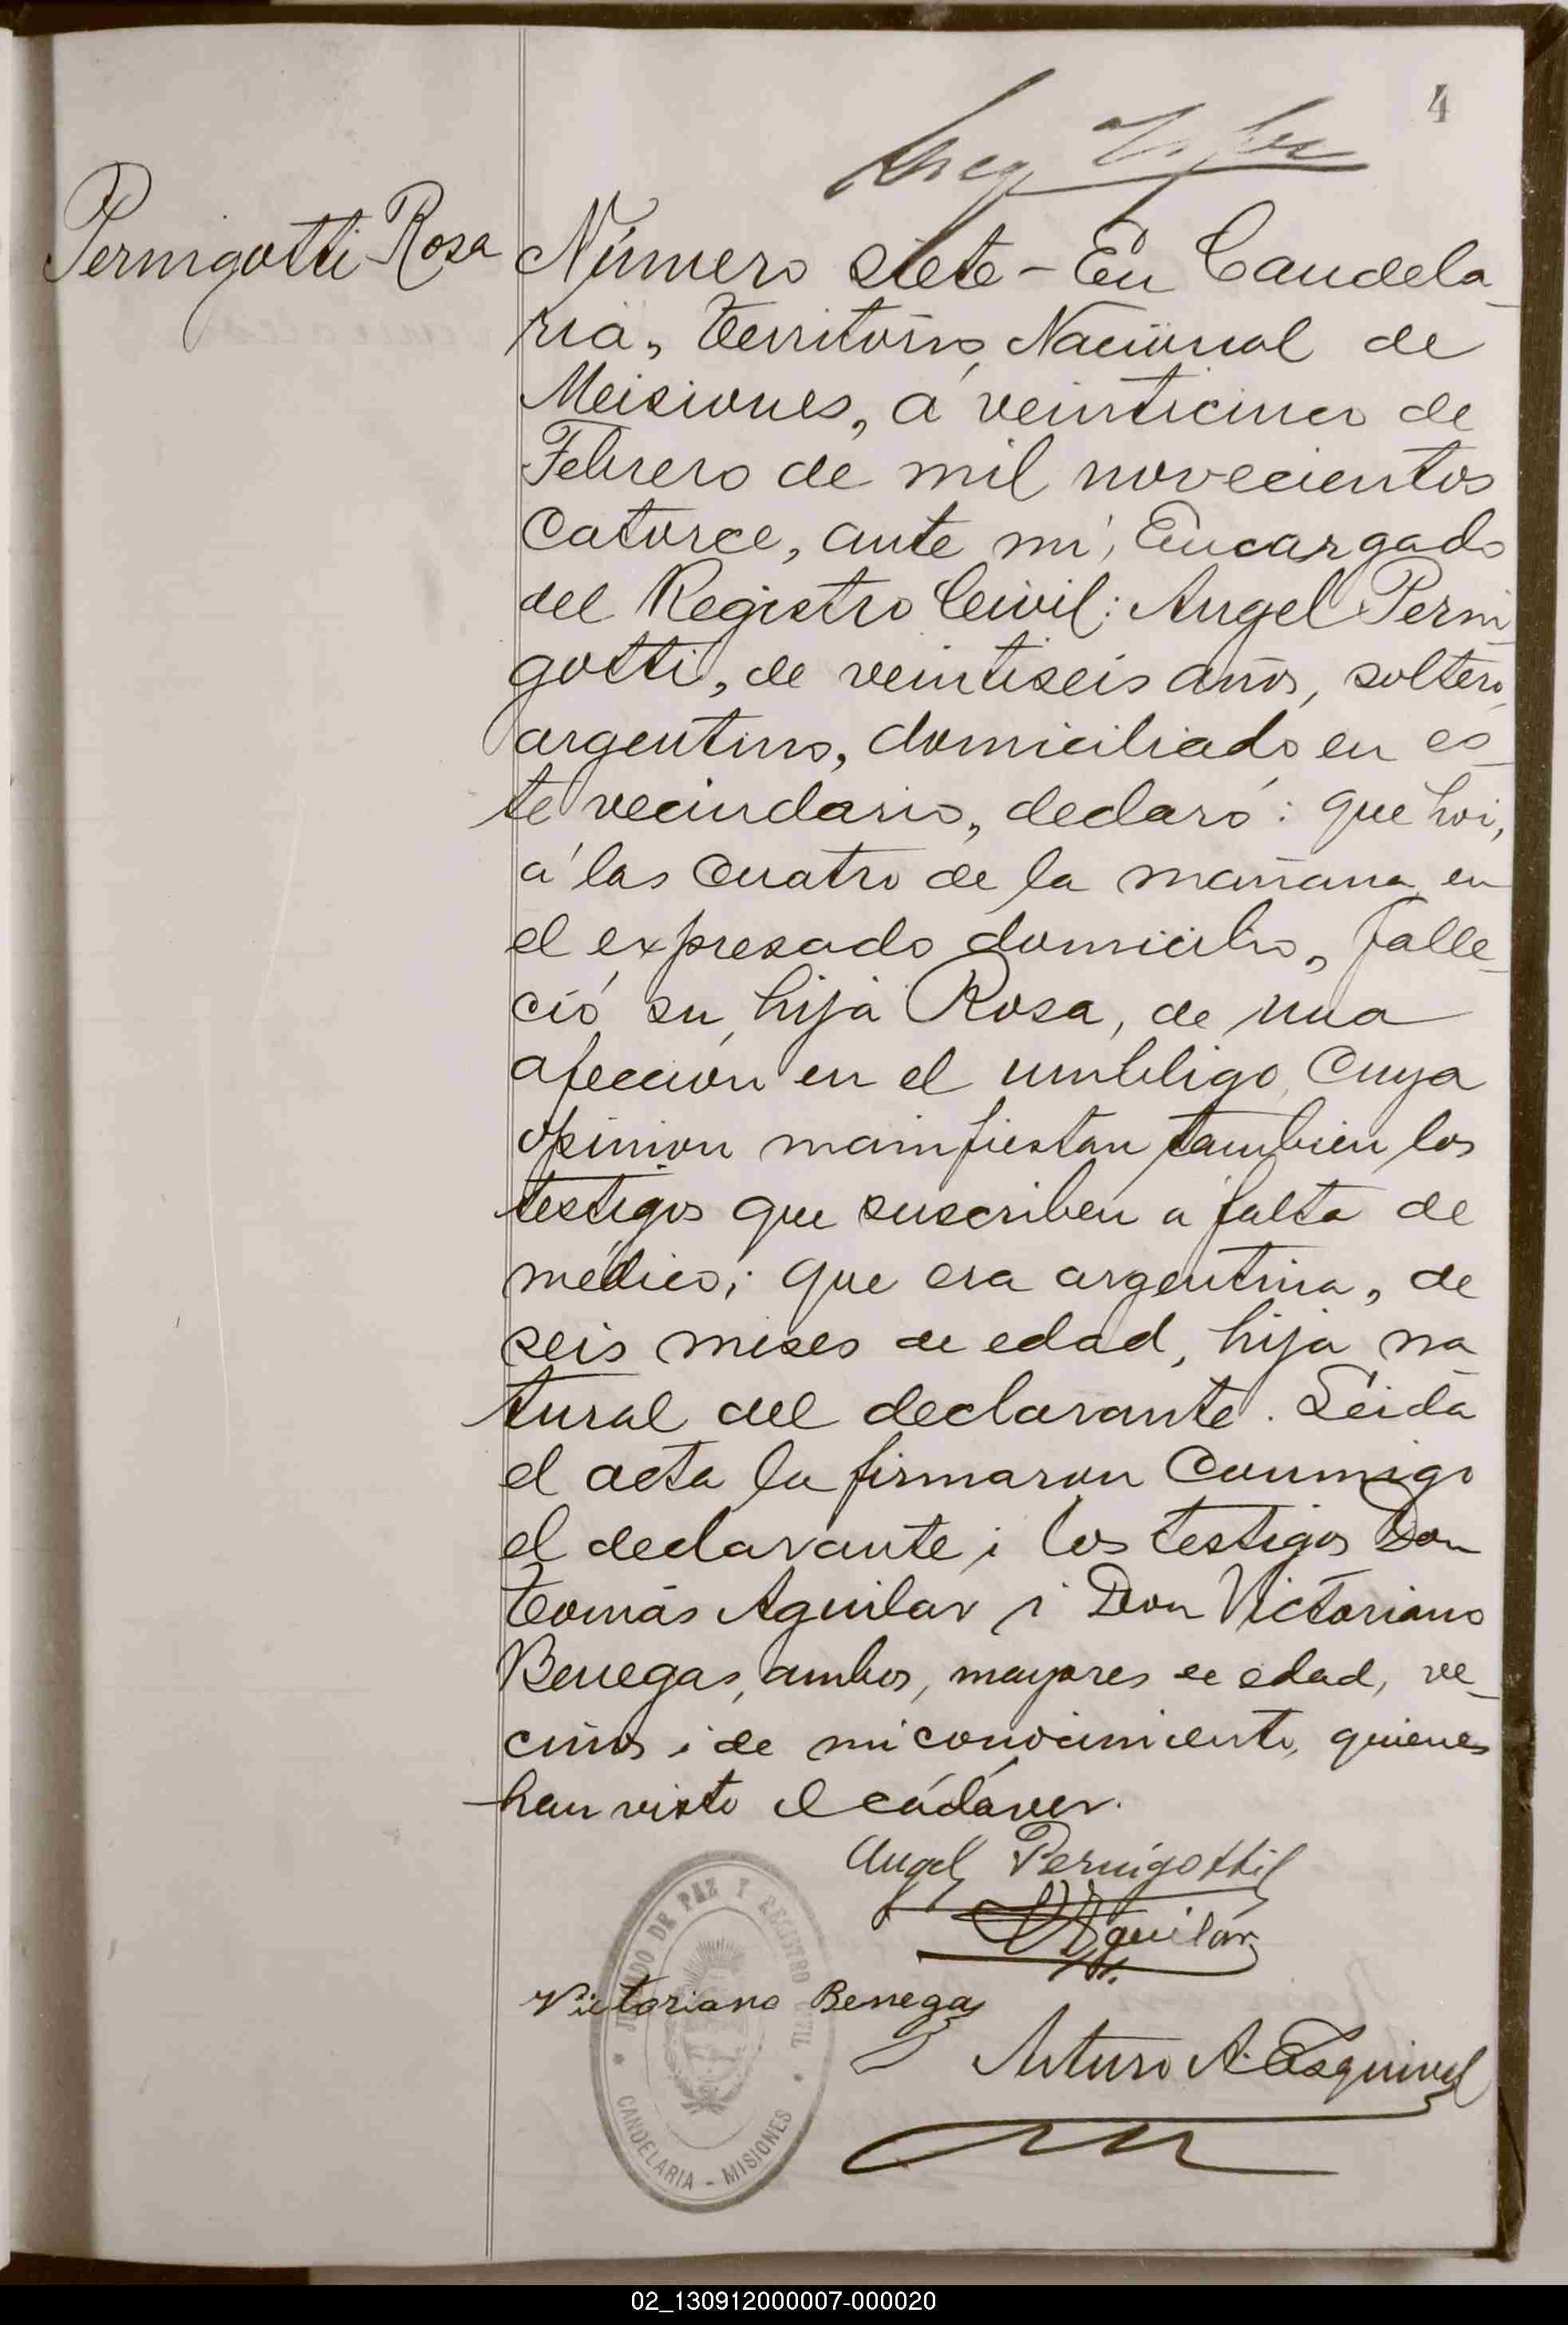 4
Pernigotti Rosa
Número siete - En Candela-
ria, territorio Nacional de
Meisiones, á veinticinco de
Febrero de mil novecientos
catorce, ante mí, Encargado
del Registro Civil: Angel Perni-
gotti, de veintiseis años, soltero,
argentino, domiciliado en es-
te vecindario, declaró: que hoi,
á las cuatro de la mañana en
el expresado domicilio, falle-
ció su hija Rosa, de una
afección en el umbligo, cuya
opinion mainfiestan tambien los
testigos que suscriben a falta de
médico; que era argentina, de
seis meses de edad, hija na-
tural del declarante. Leida
el acta la firmaron conmigo
el declarante i los testigos Don
Tomás Aguilar i Don Victoriano
Benegas, ambos, mayores de edad, ve-
cinos i de mi conocimiento, quienes
han visto el cádáver.
Angel Pernigotti
Aguilar
Victoriano Benegas
Arturo A. Esquivel
JUZGADO DE PAZ Y REGISTRO CIVIL
CANDELARIA - MISIONES
02_130912000007-000020